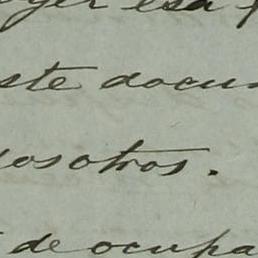 esa
ste docu
osotros.
de ocupa